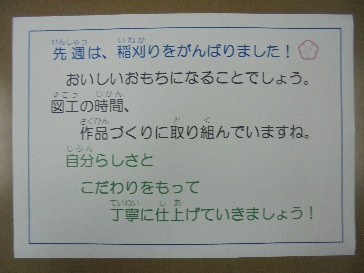 先週は、稲刈りをがんばりました！
おいしいおもちになることでしょう。
図工の時間、
作品づくりに取り組んでいますね。
自分らしさと
こだわりをもって
丁寧に仕上げていきましょう！